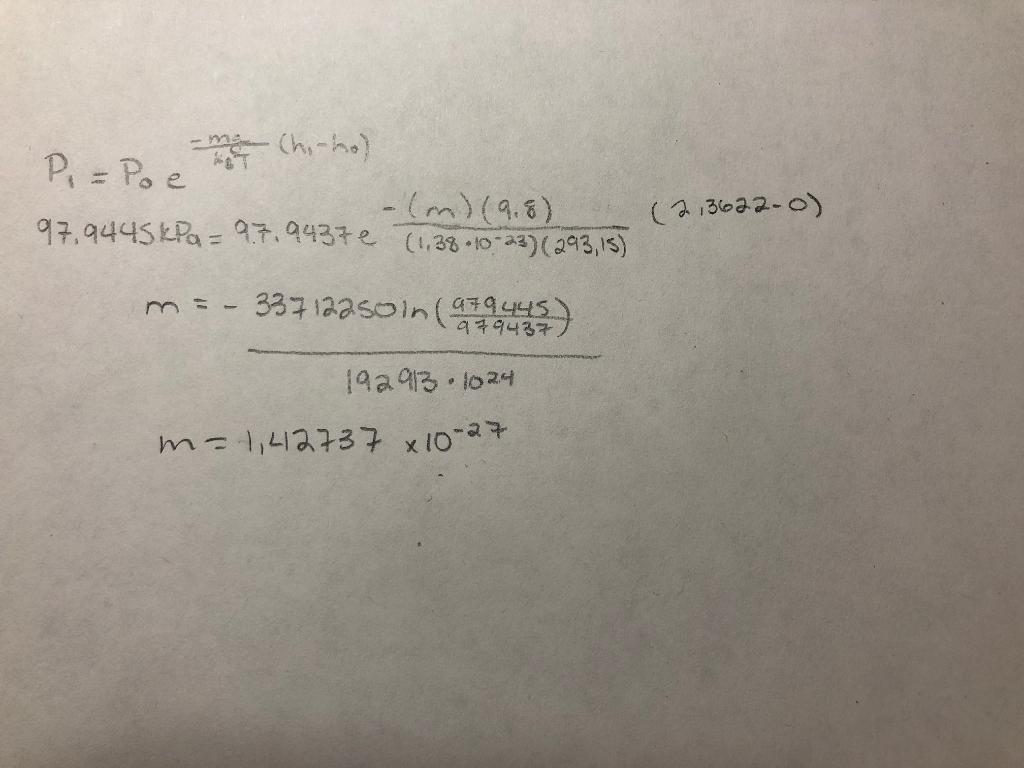 P₁ = P₀ e^(-mg/(k_B T) (h₁-h₀))
97.9445kPa = 97.9437e^(-(m)(9.8)/((1.38·10^-23)(293.15)) (2.3622-0))
m = - 33712250ln(979445/979437)
192913·10^24
m = 1.42737 x10^-27